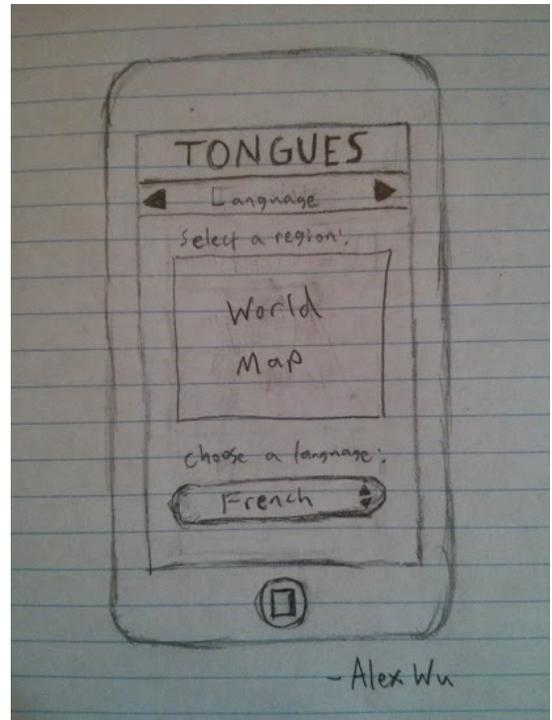 TONGUES
Language
Select a region:
World
Map
choose a language:
French
- Alex Wu